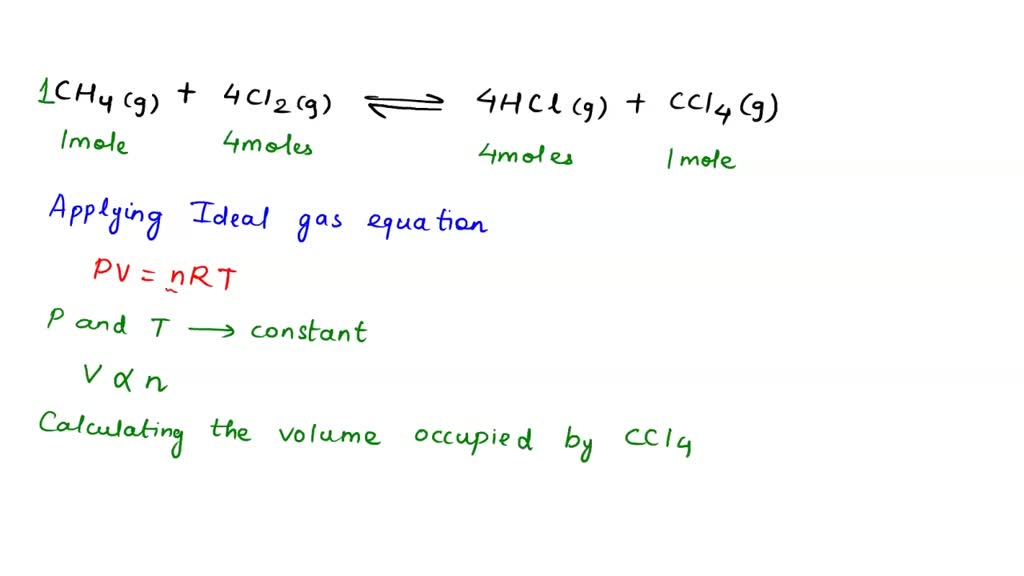 1CH4(g) + 4Cl2(g) ⇌ 4HCl(g) + CCl4(g)
1mole 4moles 4moles 1mole
Applying Ideal gas equation
PV = nRT
P and T → constant
V ∝ n
Calculating the volume occupied by CCl4